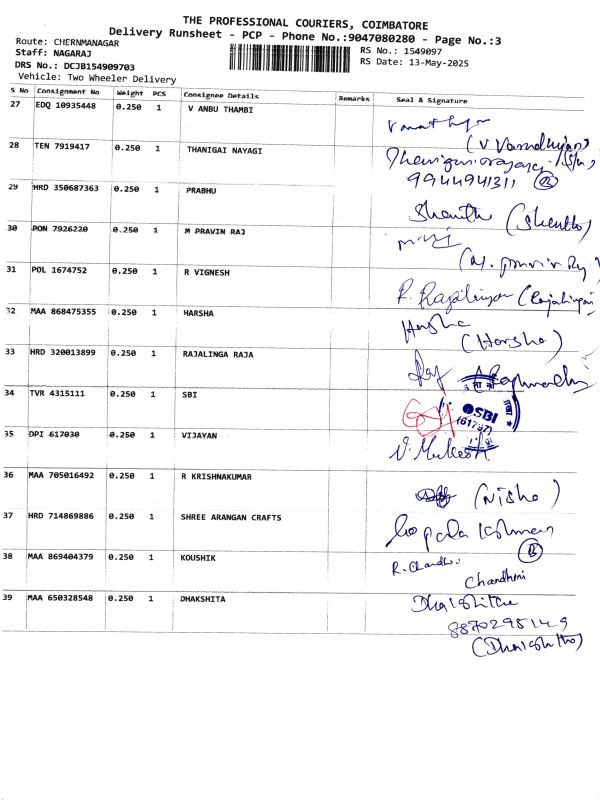 THE PROFESSIONAL COURIERS, COIMBATORE
Delivery Runsheet - PCP - Phone No.:9047080280 - Page No.:3
Route: CHERNMANAGAR
Staff: NAGARAJ
RS No.: 1549097
DRS No.: DCJB154909703
RS Date: 13-May-2025
Vehicle: Two Wheeler Delivery
S No Consignment No Weight PCS Consignee Details Remarks Seal & Signature
27 EDQ 10935448 0.250 1 V ANBU THAMBI
28 TEN 7919417 0.250 1 THANIGAI NAYAGI
9944941311 B
29 HRD 350687363 0.250 1 PRABHU
30 PON 7926220 0.250 1 M PRAVIN RAJ
31 POL 1674752 0.250 1 R VIGNESH
R. Rajalingam
32 MAA 868475355 0.250 1 HARSHA
Harsha (Harsha)
33 HRD 320013899 0.250 1 RAJALINGA RAJA
34 TVR 4315111 0.250 1 SBI
SBI
(61787)
35 DPI 617030 0.250 1 VIJAYAN
V. Mukesh
36 MAA 705016492 0.250 1 R KRISHNAKUMAR
(Nisha)
37 HRD 714869886 0.250 1 SHREE ARANGAN CRAFTS
B
38 MAA 869404379 0.250 1 KOUSHIK
R. Chandhi
Chandhini
39 MAA 650328548 0.250 1 DHAKSHITA
8870295149